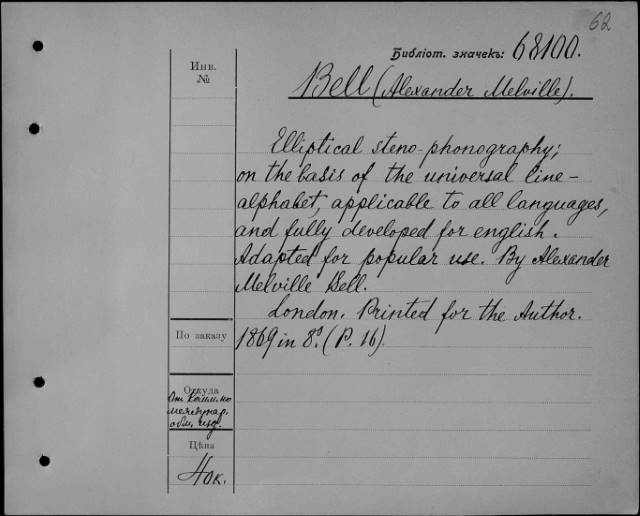 62
Библiот. значекъ: 68100.
Инв.
№
Bell (Alexander Melville).
Elliptical steno-phonography;
on the basis of the universal line-
alphabet, applicable to all languages,
and fully developed for english.
Adapted for popular use. By Alexander
Melville Bell.
London. Printed for the Author.
По заказу
1869 in 8º. (P. 16).
Откуда
От Комм. по
междунар.
обм. изд.
Цѣна
40к.